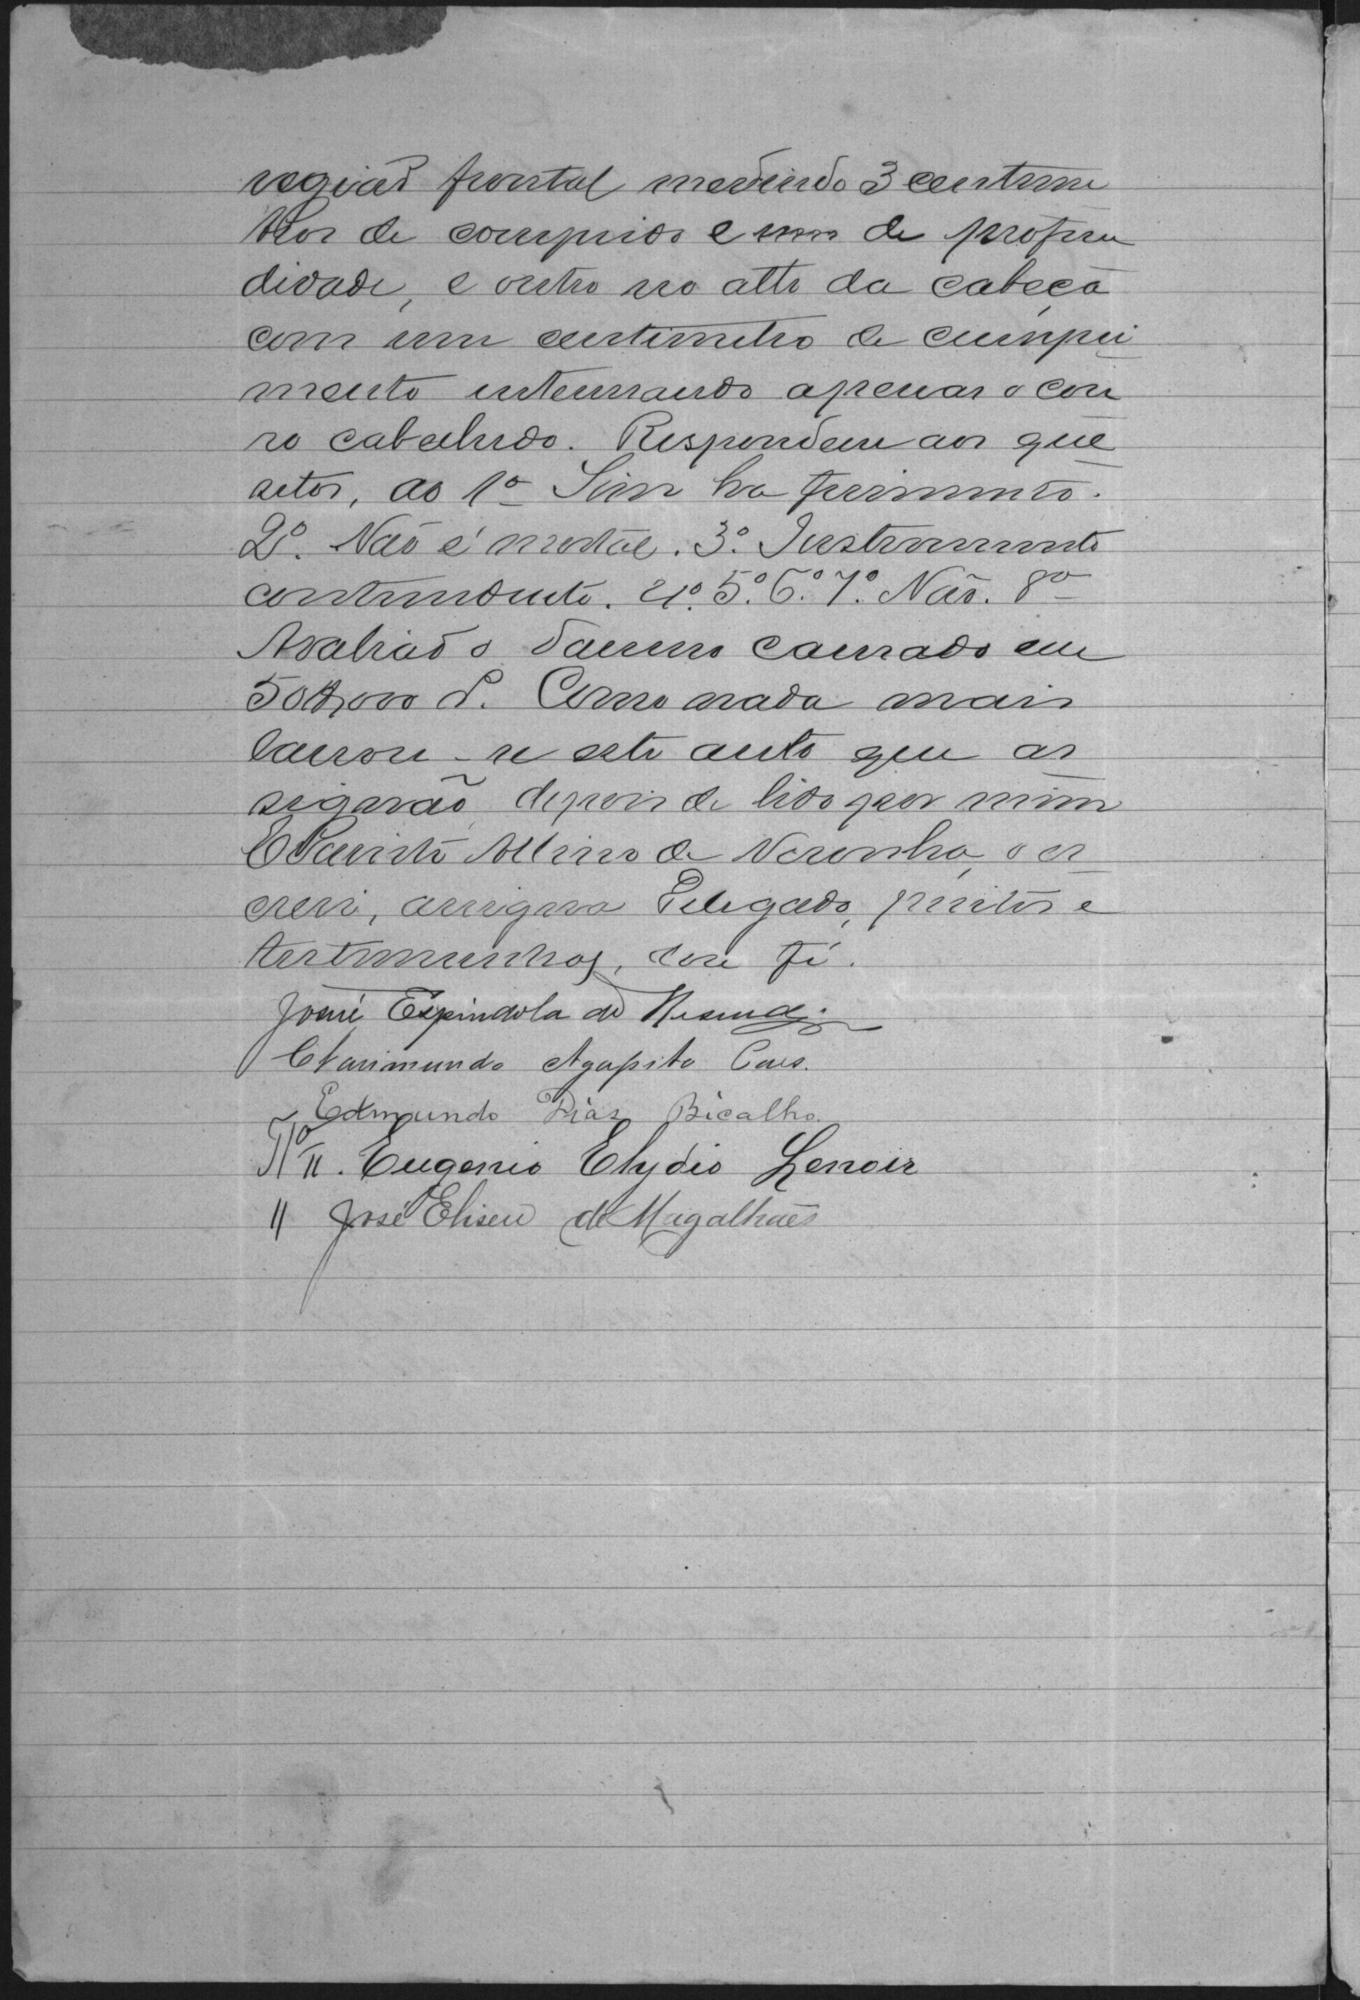 região frontal medindo 3 centime
tros de comprido e um de profun
didade, e outro no alto da cabeça
com um centimetro de cumpri
mento interessando apenas o cou
ro cabelludo. Respondem aos que
sitos, ao 1º Sim ha ferimento.
2º. Não é mortal. 3º. Instrumento
contundente. 4º. 5º. 6º. 7º. Não. 8º
Avalião o damno causado em
50$000 rs. Como nada mais
lavrou-se este auto que as
signão, depois de lido por mim
Evaristo Albino de Noronha, o es
crevi, assigna Delegado, peritos e
testemunhas, dou fé.
José Espindola de Resende.
Clarimundo Agapito Paes.
Edmundo Dias Bicalho.
Eugenio Elydio Lenoir
" José Eliseu de Magalhães